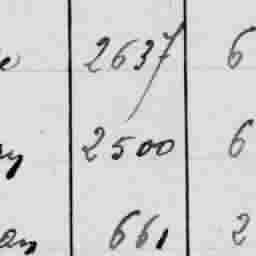 2637 6
2500 6
661 2